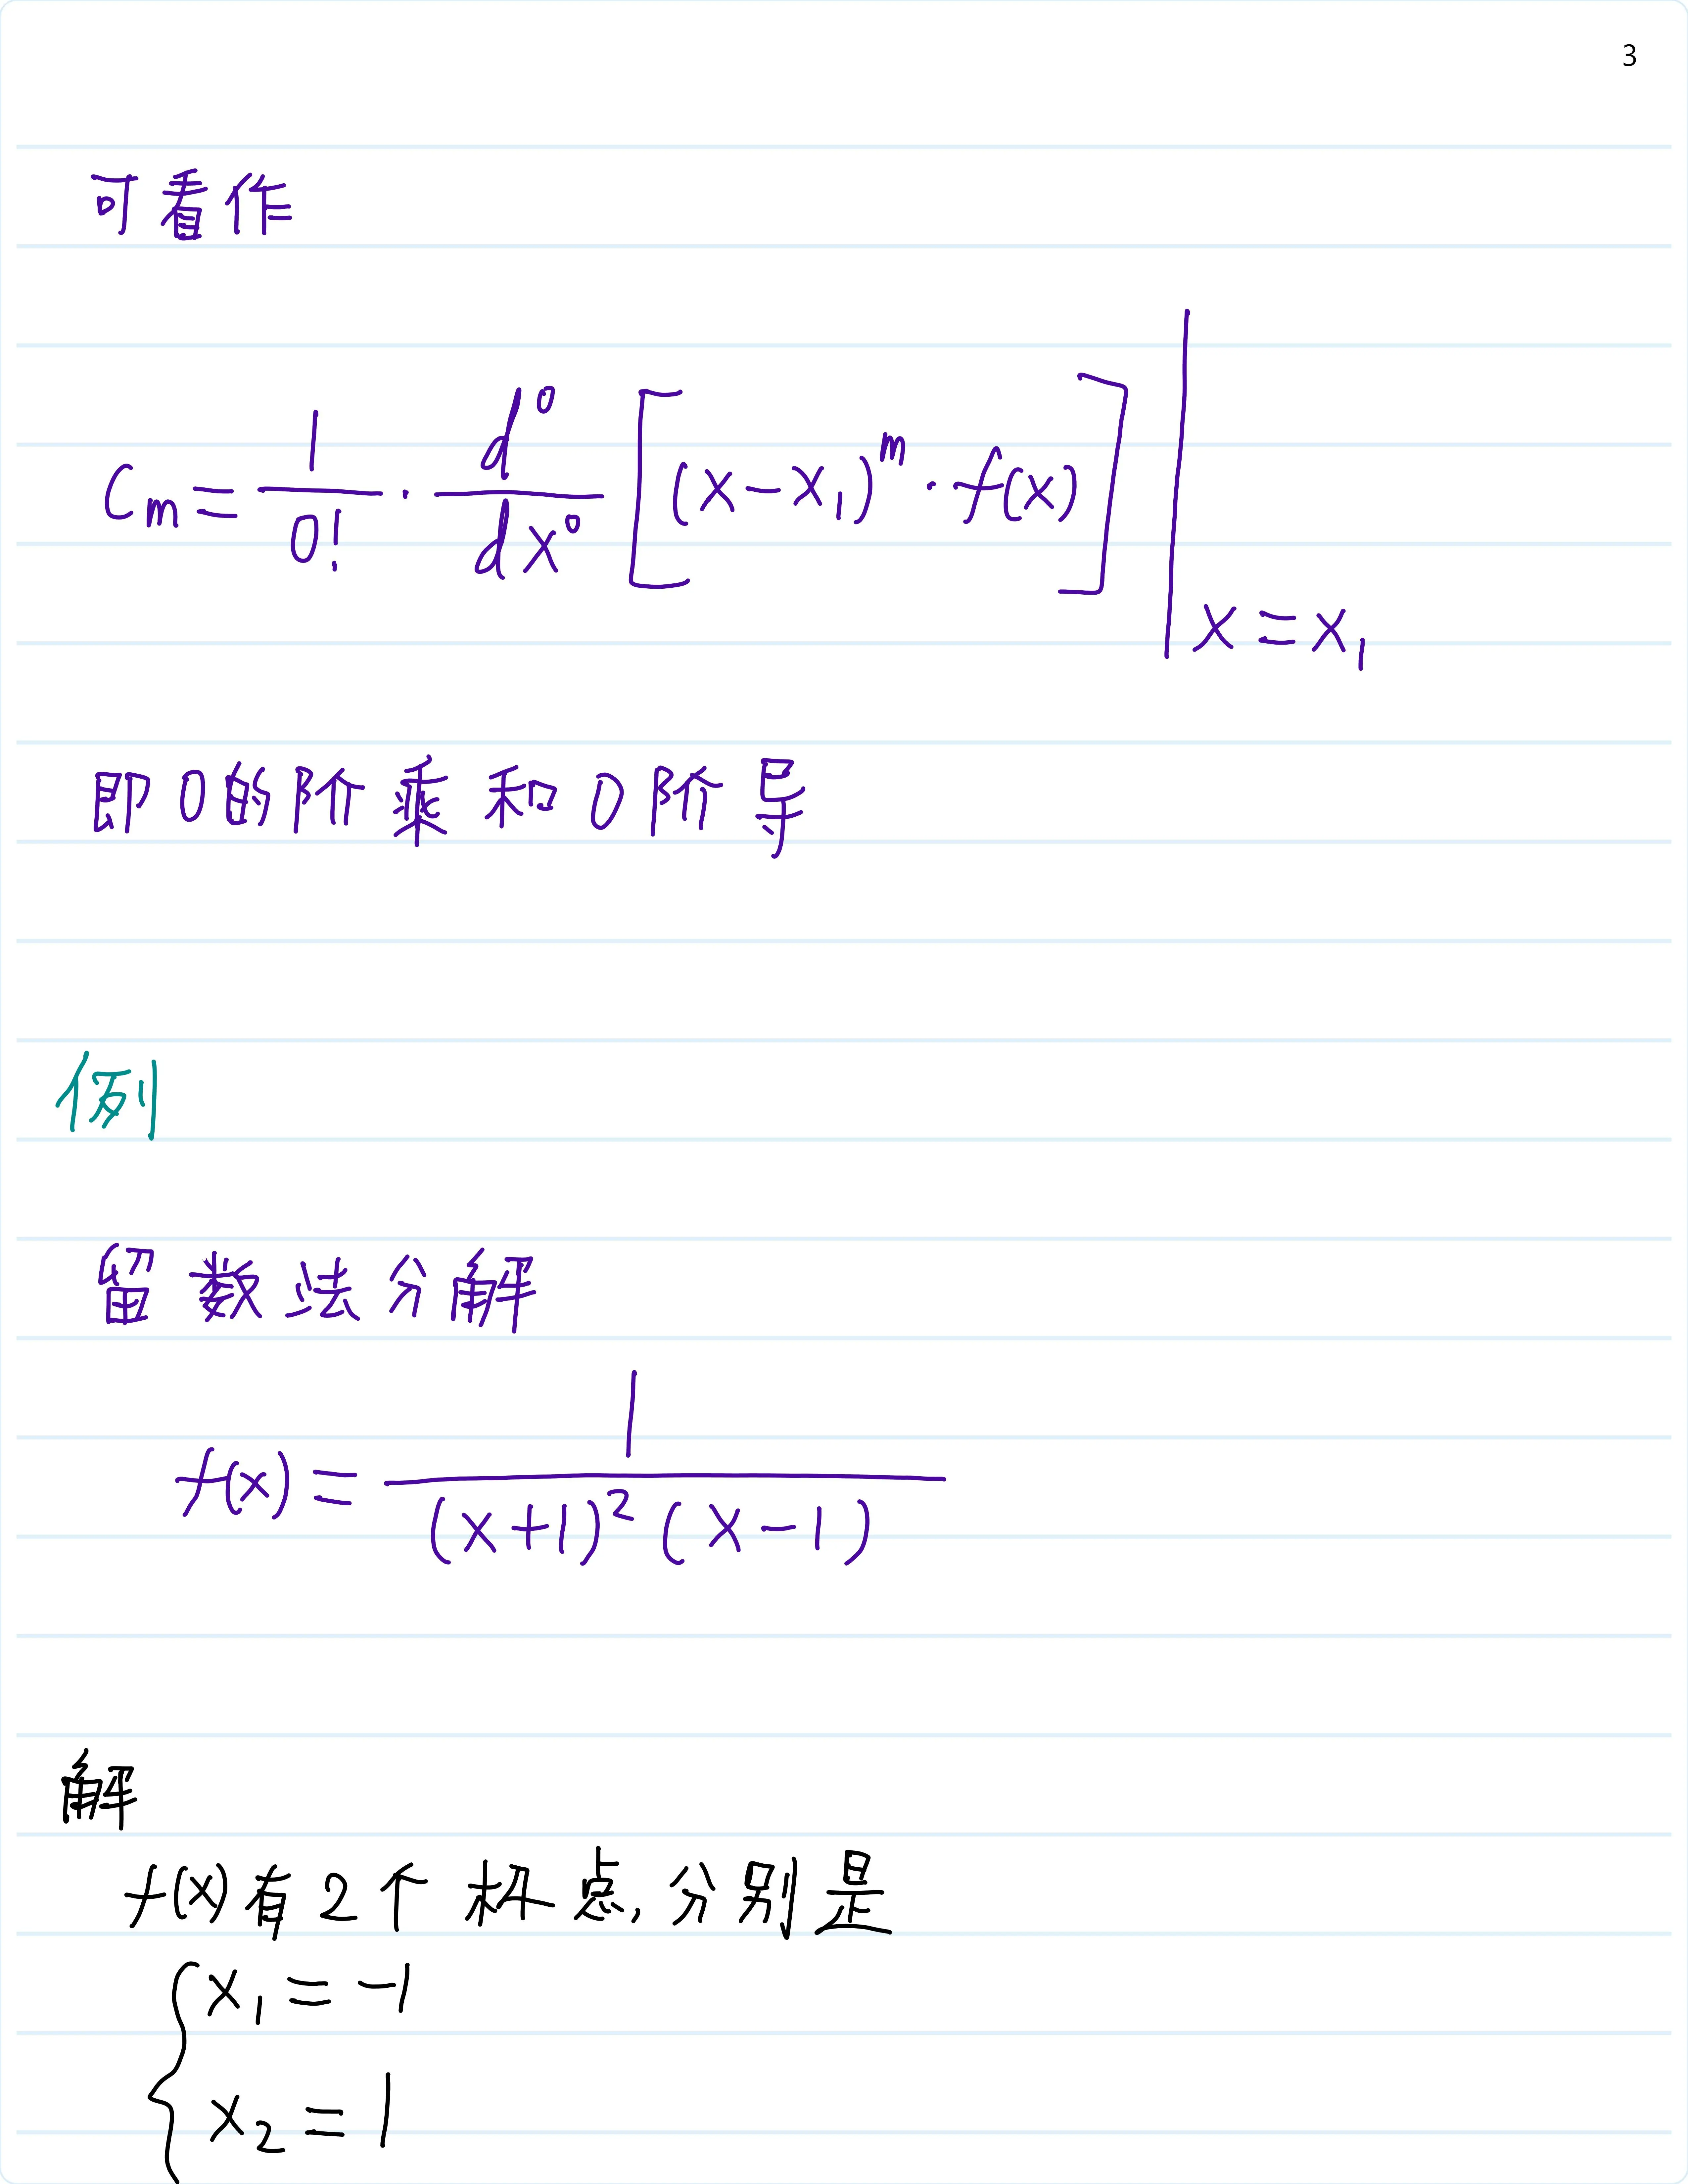 3
可看作
C_m = \frac{1}{0!} \cdot \frac{d^0}{dx^0} [(x-x_1)^m \cdot f(x)] |_{x=x_1}
即0的阶乘和0阶导
例
留数法分解
f(x) = \frac{1}{(x+1)^2(x-1)}
解
f(x)有2个极点,分别是
{ x_1 = -1
x_2 = 1